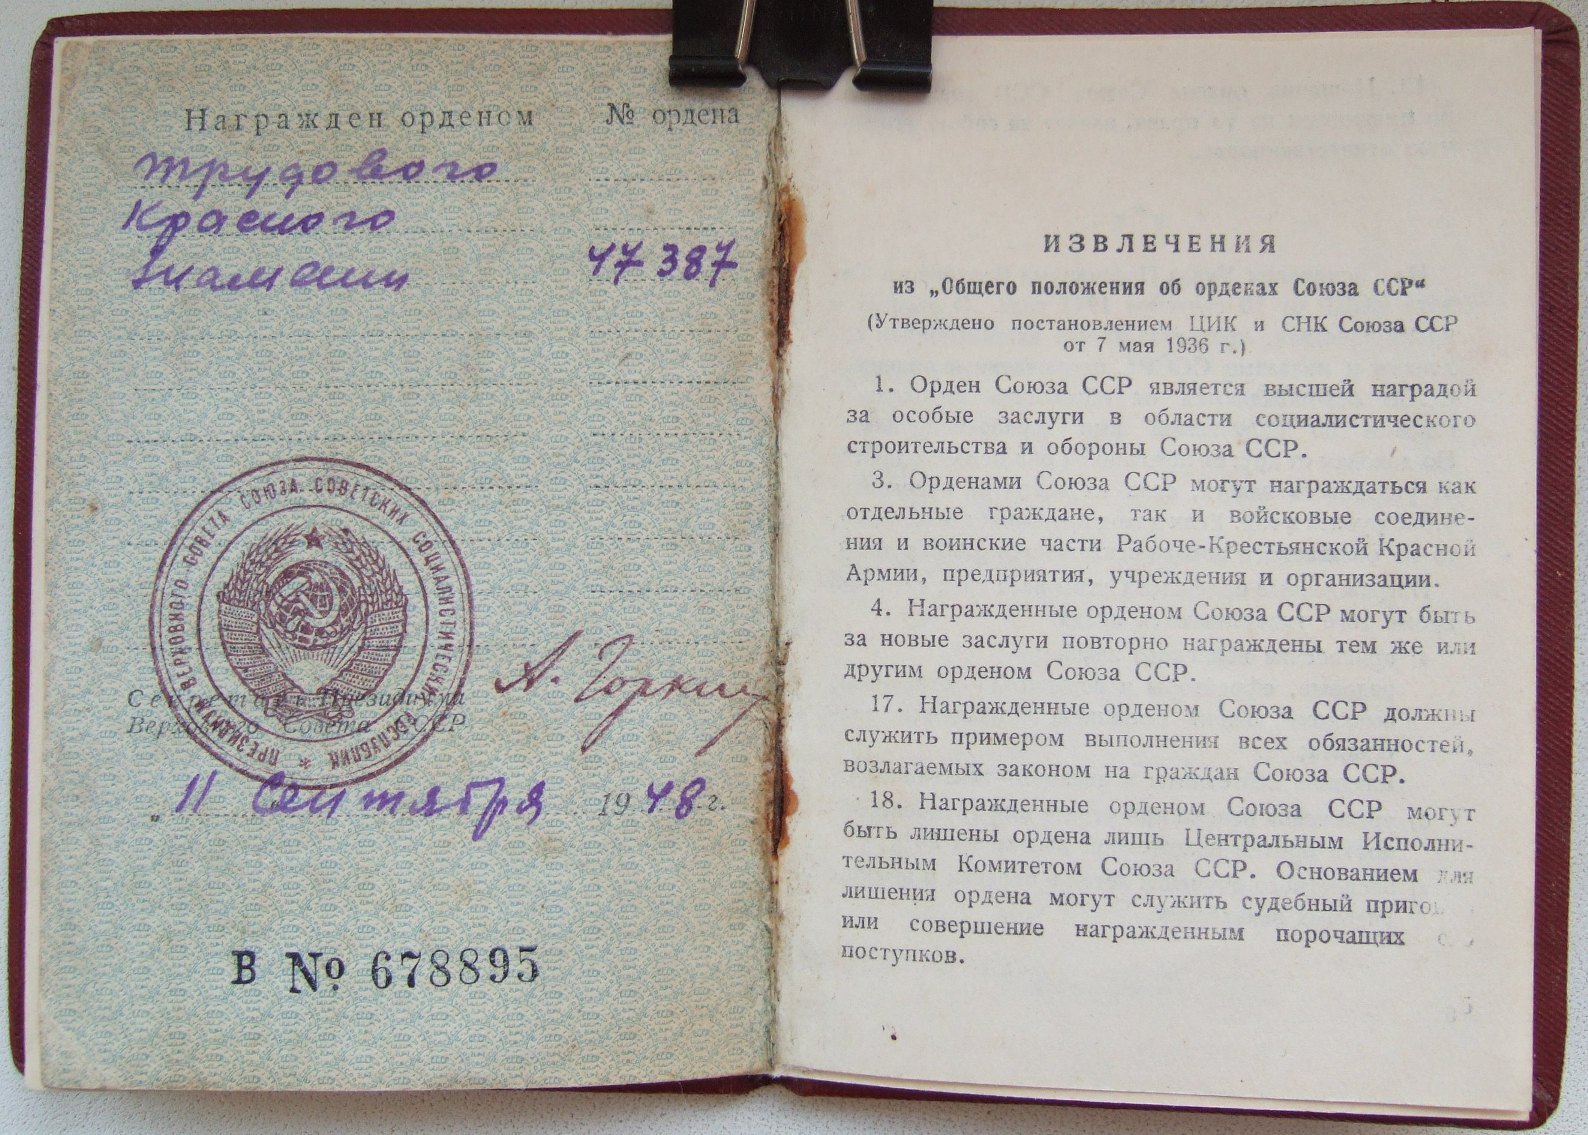 Награжден орденом № ордена
Трудового
Красного
Знамени 47387
ПРЕЗИДИУМ ВЕРХОВНОГО СОВЕТА СОЮЗА СОВЕТСКИХ СОЦИАЛИСТИЧЕСКИХ РЕСПУБЛИК
Секретарь Президиума
Верховного Совета СССР
А. Горкин
„ 11 Сентября 1948 г.
В № 678895
ИЗВЛЕЧЕНИЯ
из „Общего положения об орденах Союза ССР“
(Утверждено постановлением ЦИК и СНК Союза ССР
от 7 мая 1936 г.)
1. Орден Союза ССР является высшей наградой
за особые заслуги в области социалистического
строительства и обороны Союза ССР.
3. Орденами Союза ССР могут награждаться как
отдельные граждане, так и войсковые соедине-
ния и воинские части Рабоче-Крестьянской Красной
Армии, предприятия, учреждения и организации.
4. Награжденные орденом Союза ССР могут быть
за новые заслуги повторно награждены тем же или
другим орденом Союза ССР.
17. Награжденные орденом Союза ССР должны
служить примером выполнения всех обязанностей,
возлагаемых законом на граждан Союза ССР.
18. Награжденные орденом Союза ССР могут
быть лишены ордена лишь Центральным Исполни-
тельным Комитетом Союза ССР. Основанием для
лишения ордена могут служить судебный приго
или совершение награжденным порочащих
поступков.